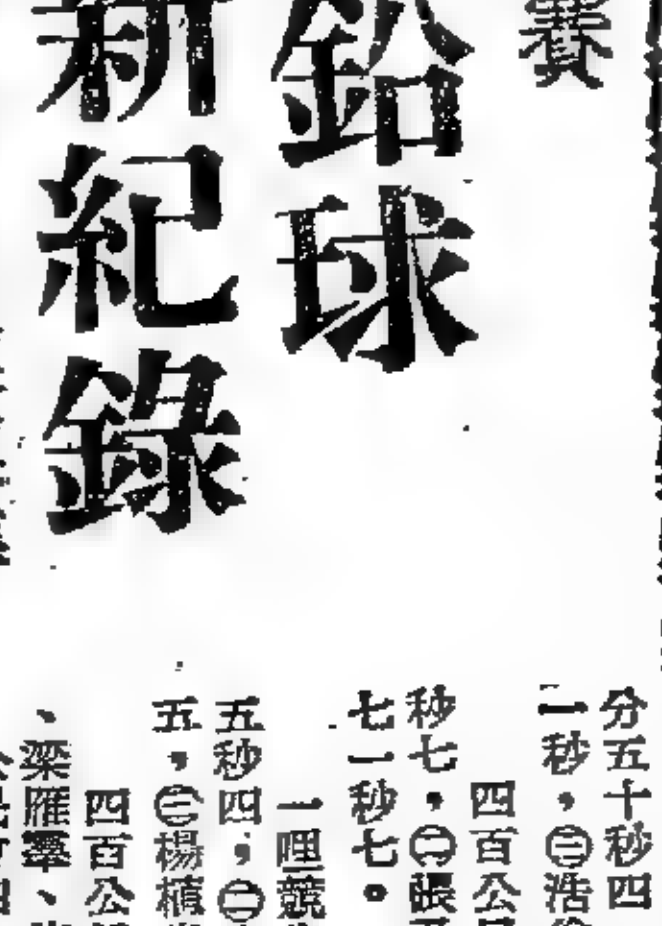 賽
鉛球
新紀錄
分五十秒四
一秒，㊂浩
四百公
秒七，㊁張
七一秒七。
一哩競
五秒四，㊁
五，㊂楊植
四百公
、梁雁羣、